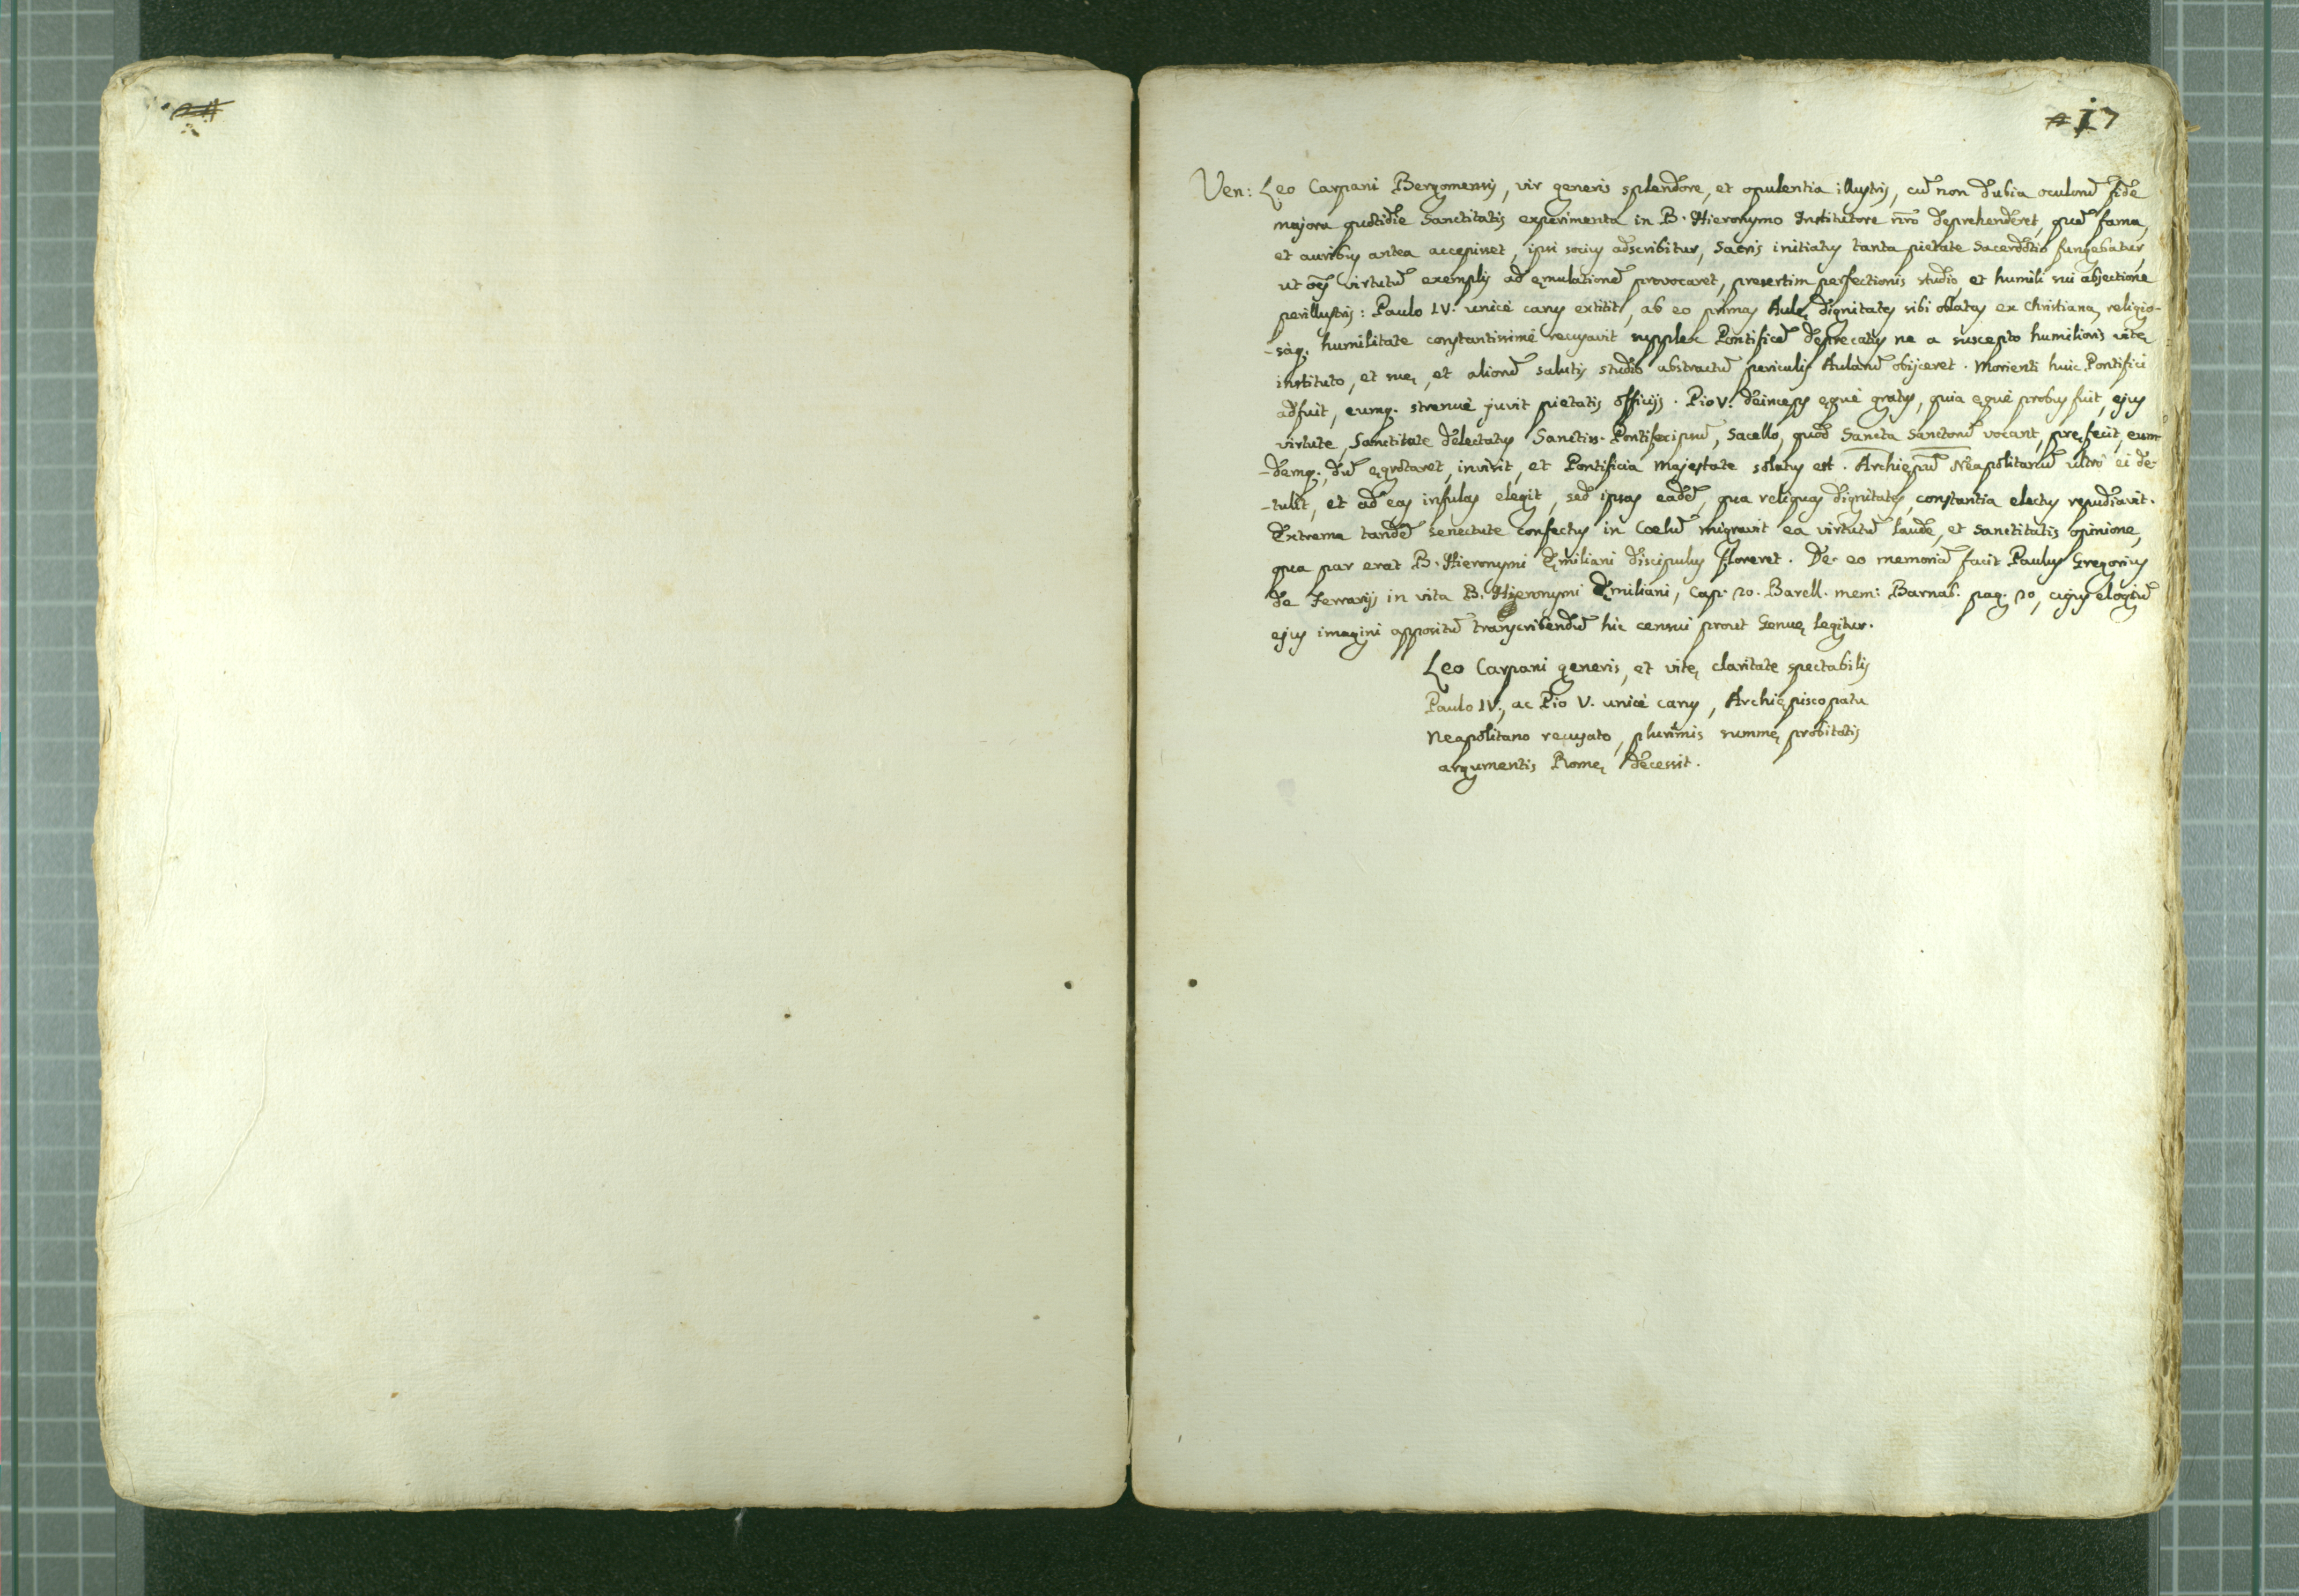 17
Ven: Leo Carpani Bergomensis, vir generis splendore, et opulentia illustris, cũ non dubia oculorũ fide
majora quotidie Sanctitatis experimenta in B. Hieronymo Institutore nr̃o deprehenderet, quã fama,
et auribus antea accepisset, ipsi socius adscribitur, Sacris initiatus tanta pietate Sacerdotio fungebatur,
ut oẽs virtutũ exemplis ad ęmulationẽ provocaret, presertim perfectionis studio, et humili sui abjectione
perillustris: Paulo IV. unicè carus extitit, ab eo primas Aulę dignitates sibi oblatas ex Christiana, religio-
-sàq. humilitate constantissimè recusavit supplex Pontificẽ deprecatus ne a suscepto humilioris vitę
instituto, et suę, et aliorũ salutis studio abstractũ periculis Aularũ obijceret. Morienti huic Pontifici
adfuit, eumq. strenuè juvit pietatis officijs. Pio V. deinceps ęquè gratus, quia ęquè probus fuit, ejus
virtute, Sanctitate delectatus Sanctiss. Pontifex ipsũ, Sacello, quod Sancta Sanctorũ vocant, pręfecit, eum
-demq., dũ ęgrotaret, invisit, et Pontificia Majestate solatus est. Archięp̃ũ Neapolitanũ ultrò ei de-
-tulit, et ad eas infulas elegit, sed ipsas eadẽ, qua reliquas dignitates, constantia electus repudiavit.
Extrema tandẽ senectute confectus in Coelũ migravit ea virtutũ laude, et Sanctitatis opinione,
qua par erat B. Hieronymi Ęmiliani discipulus floreret. De eo memoriã facit Paulus Gregorius
de Ferrarijs in vita B. Hieronymi Ęmiliani, Cap. 20. Barell. mem: Barnab. pag. 20, cujus elogiũ
ejus imagini appositũ transcribendũ hic censui prout Genuę legitur.
Leo Carpani generis, et vitę claritate spectabilis
Paulo IV., ac Pio V. unicè carus, Archiępiscopatu
Neapolitano recusato, plurimis summę probitatis
argumentis Romę decessit.